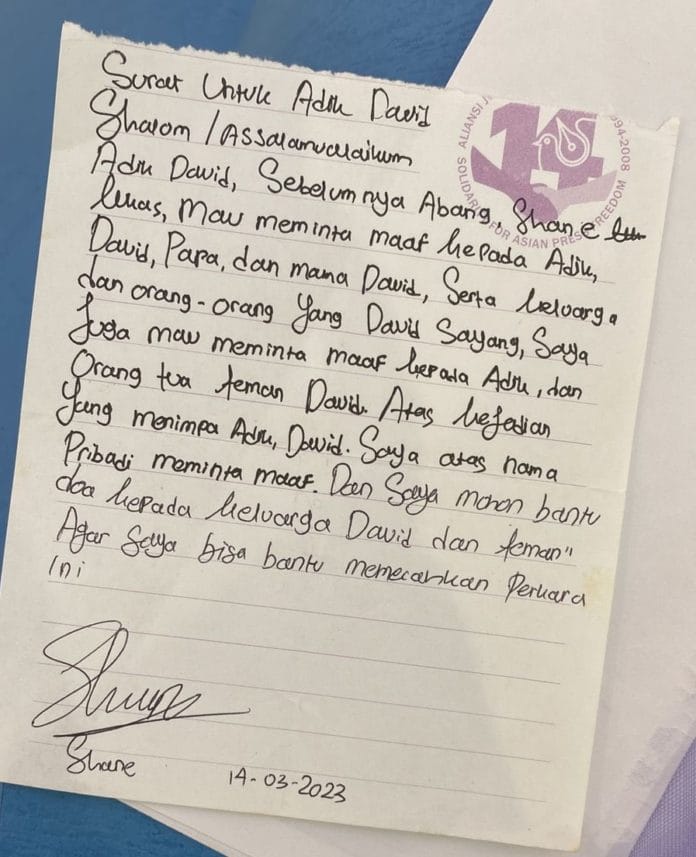 Surat Untuk Adik David
Shalom / Assalamualaikum
Adik David, Sebelumnya Abang, Shane
lukas, mau meminta maaf kepada Adik,
David, Papa, dan mama David, Serta keluarga
dan orang-orang yang David Sayang, Saya
Juga mau meminta maaf kepada Adik, dan
Orang tua teman David. Atas kejadian
Yang menimpa Adik, David. Saya atas nama
Pribadi meminta maaf. Dan Saya mohon bantu
doa kepada keluarga David dan teman"
Agar Saya bisa bantu memecahkan Perkara
Ini
Shane
14-03-2023
14
ALIANSI
994-2008
FOR ASIAN PRESS FREEDOM